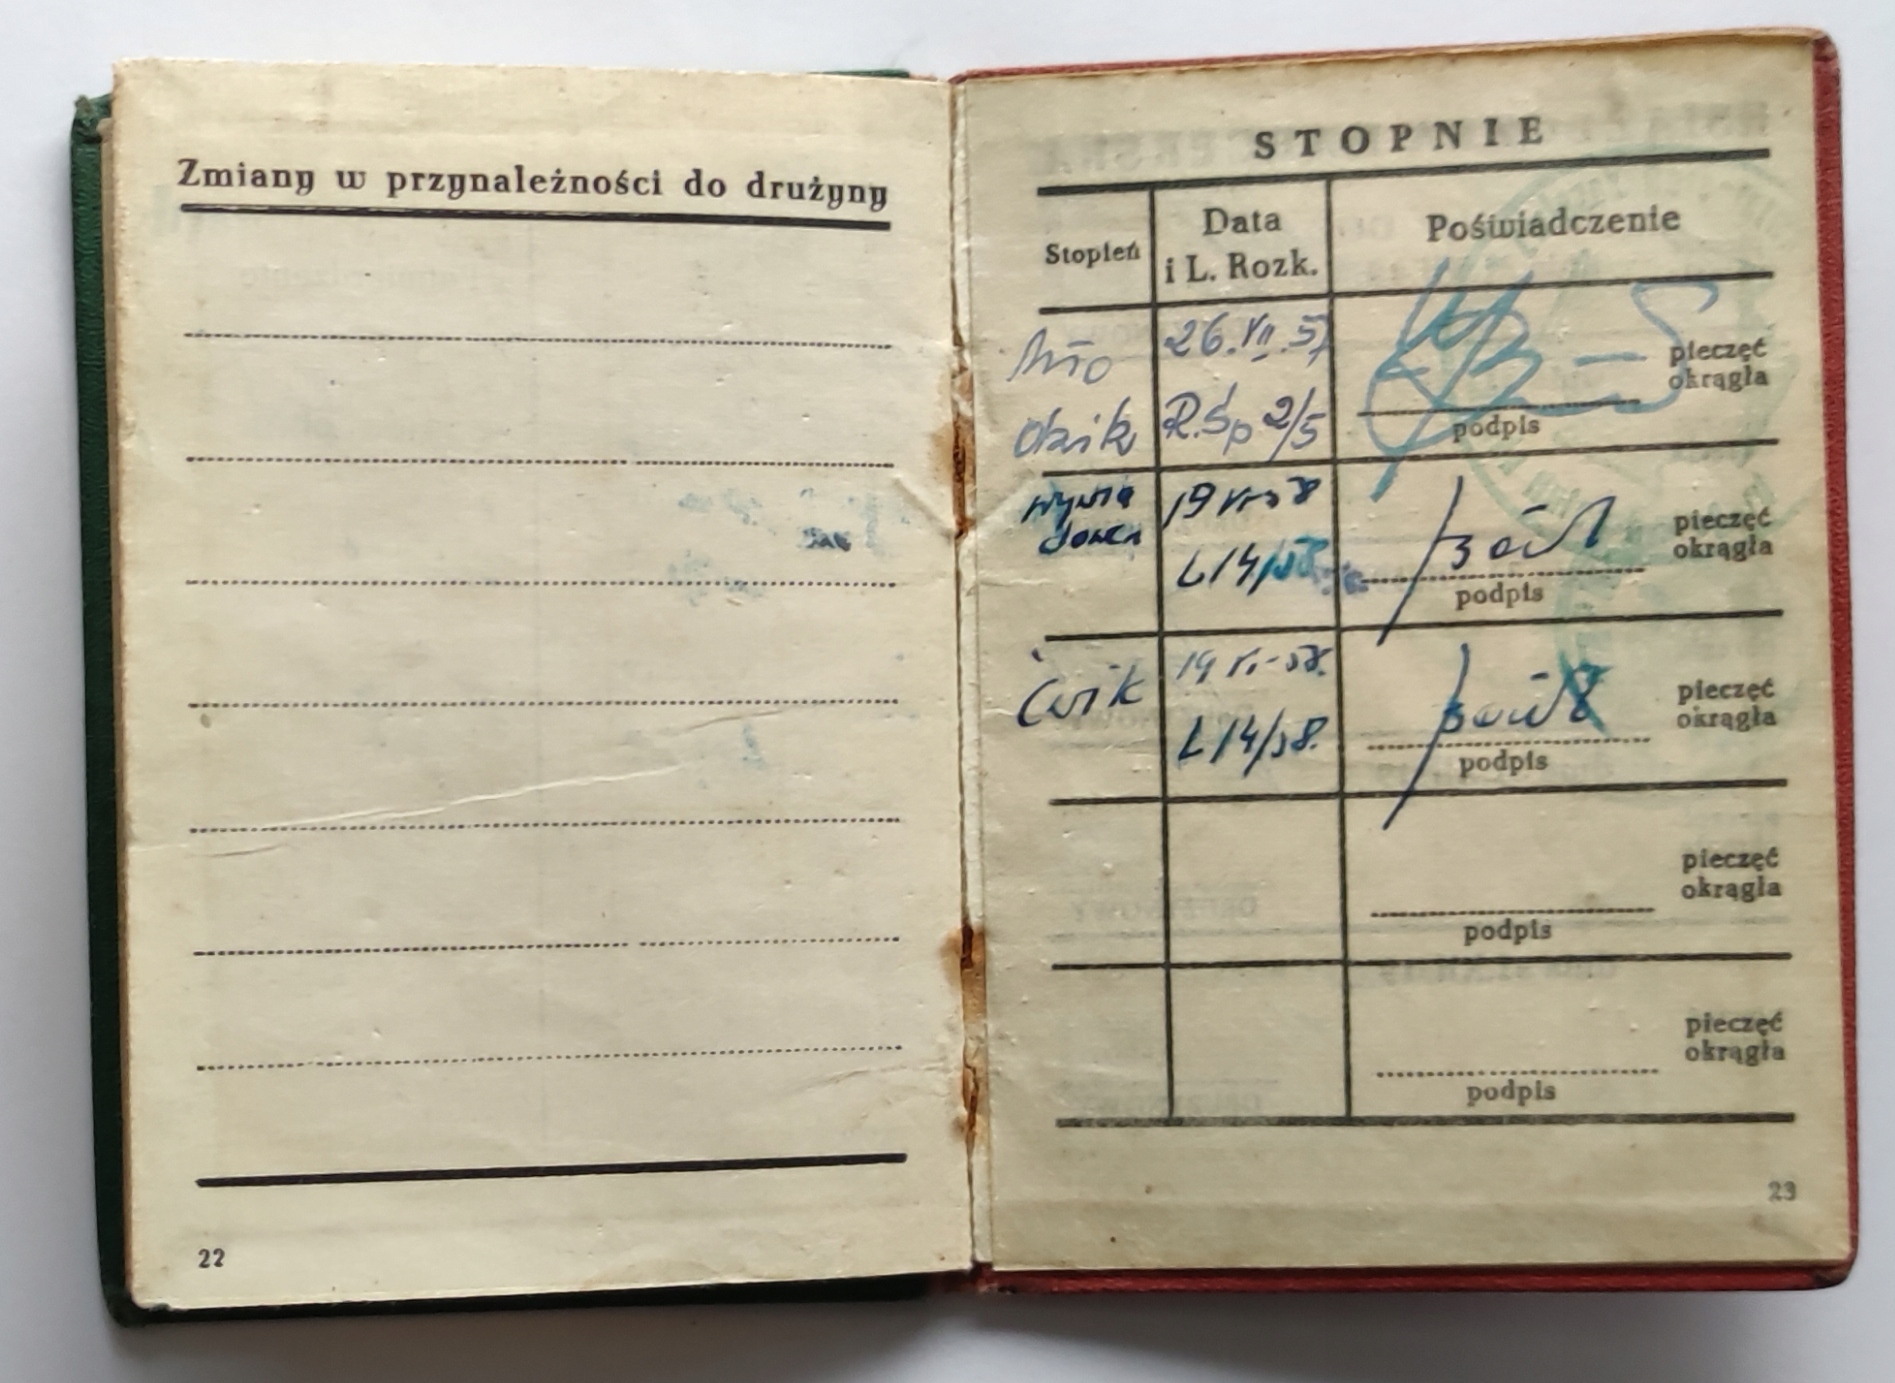 Zmiany w przynależności do drużyny
22
STOPNIE
Stopień
Data
i L. Rozk.
Poświadczenie
Mło
dzik
26.VII.57
R.Śp 2/5
pieczęć
okrągła
podpis
wywia
dowca
19 VI 58
L14/58
pieczęć
okrągła
podpis
Ćwik
19 VI-58.
L14/58.
pieczęć
okrągła
podpis
pieczęć
okrągła
podpis
pieczęć
okrągła
podpis
23